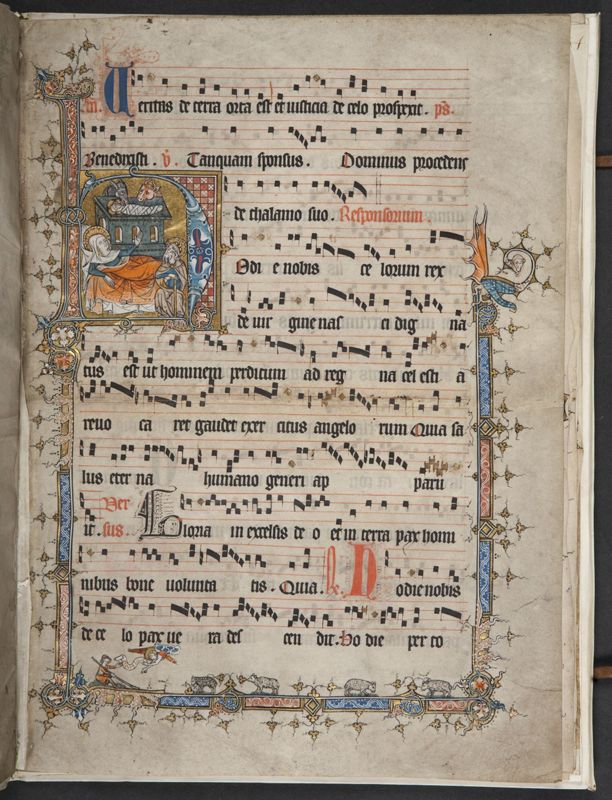 an. Veritas de terra orta est et iusticia de celo prospexit. ps.
Benedixisti. v. Tanquam sponsus. Dominus procedens
de thalamo suo. Responsorium
Hodi e nobis ce lorum rex
de uir gine nas ci dig na
tus est ut hominem perditum ad reg na cel esti a
reuo ca ret gaudet exer citus angelo rum Quia sa
lus eter na humano generi ap paru
it. Ver sus. Gloria in excelsis de o et in terra pax homi
nibus bone uolunta tis. Quia. R. Hodie nobis
de ce lo pax ue ra des cen dit. Ho die per to